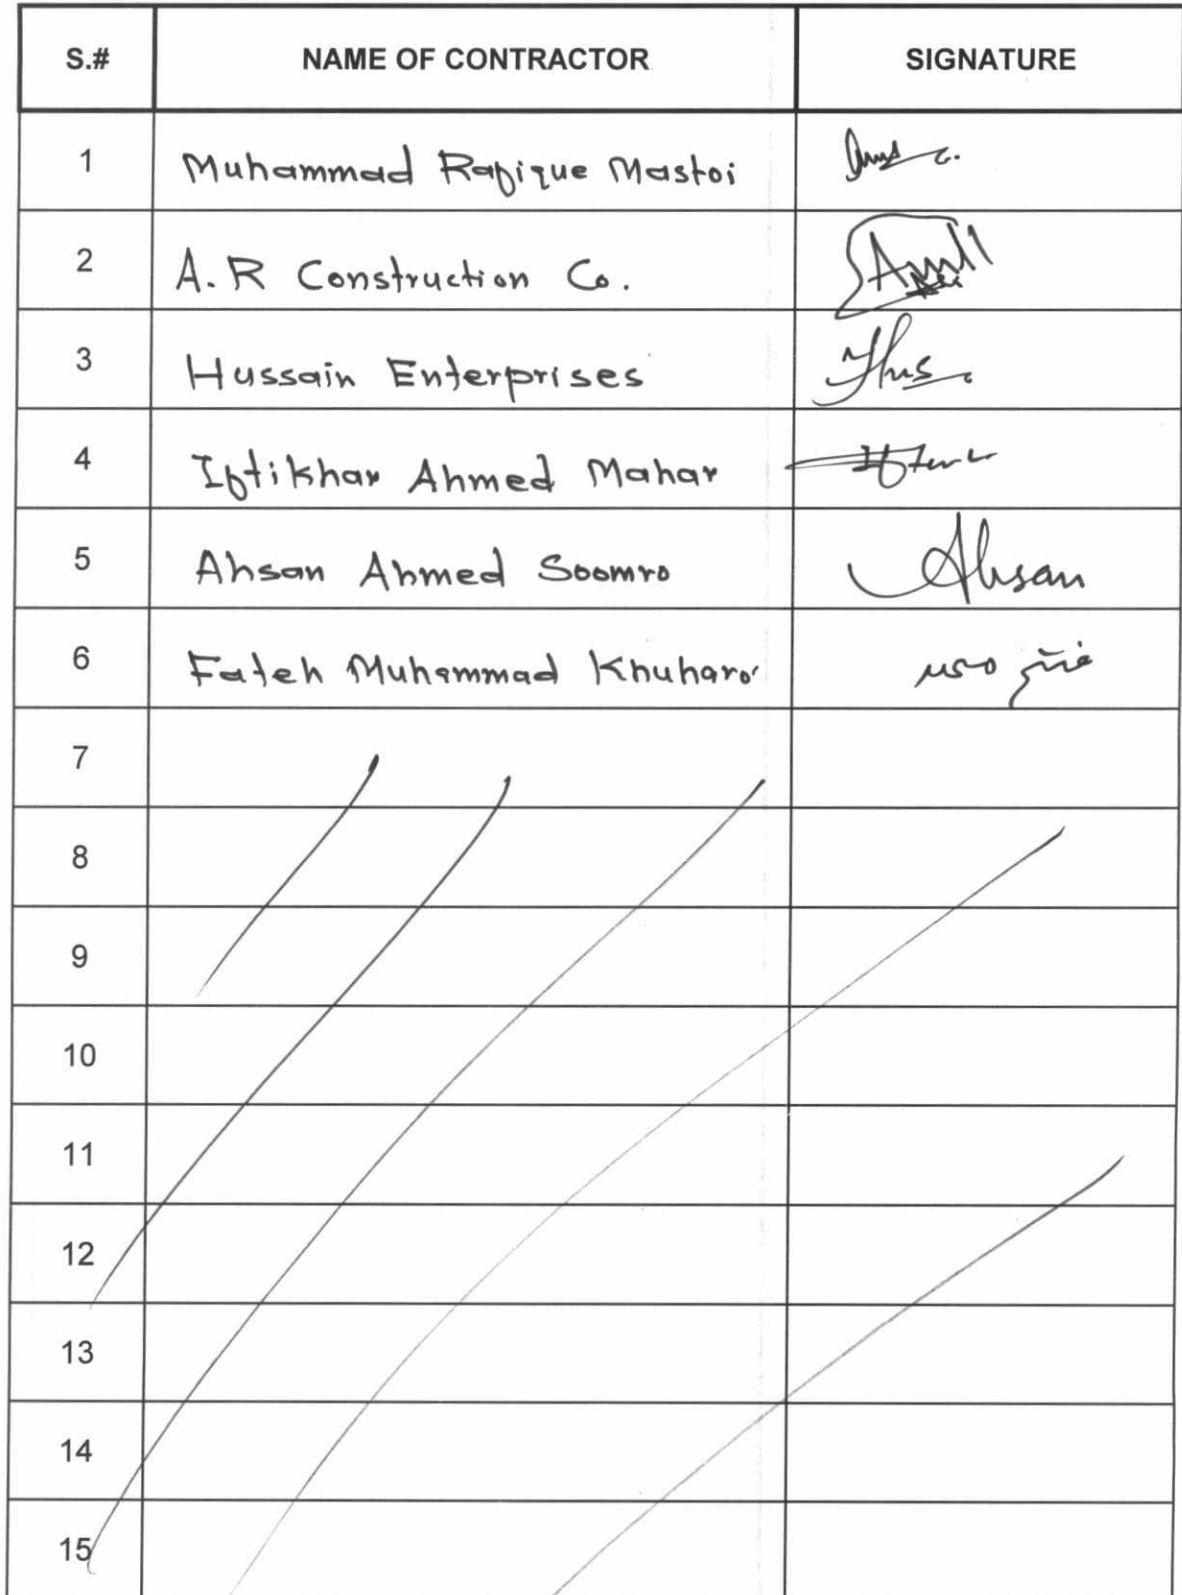 S.# NAME OF CONTRACTOR SIGNATURE
1 Muhammad Rafique Mastoi
2 A.R Construction Co.
3 Hussain Enterprises Hus
4 Iftikhar Ahmed Mahar
5 Ahsan Ahmed Soomro Ahsan
6 Fateh Muhammad Khuharo
7
8
9
10
11
12
13
14
15